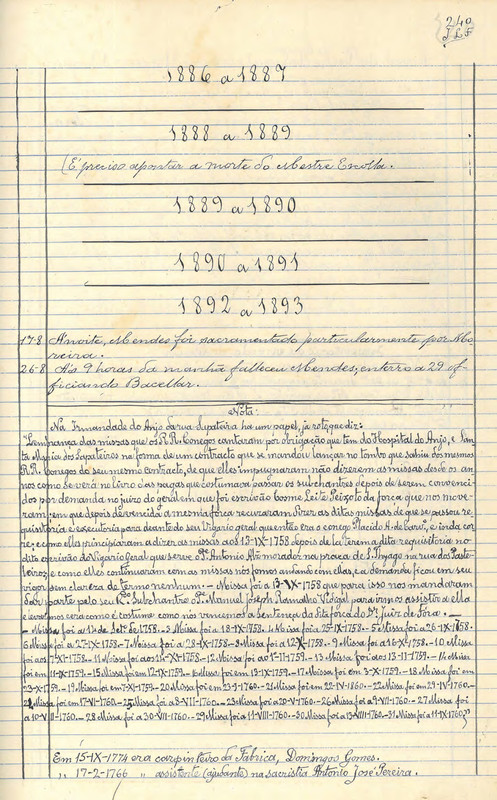 240
J.L.F.
1886 a 1887
1888 a 1889
(É preciso apontar a morte do Mestre Escolla.
1889 a 1890
1890 a 1891
1892 a 1893
17-8 Á noite, Mendes foi sacramentado particularmente por Mo
reira.
26-8 Ás 9 horas da manhã falleceu Mendes; enterro a 29 of
ficiando Bacellar.
Nota:
Na Irmandade do Anjo da rua Sapataria ha um papel, já roto, que diz:
"Lembrança das missas que os R.R. Conegos cantaram por obrigação que tem do Hospital do Anjo, e San
ta Maria dos Sapateiros na forma de um contracto que se mandou lançar no tombo que sahiu dos mesmos
R.R. Conegos do seu mesmo contracto, de que elles impugnaram não dizerem as missas desde os an
nos como se verá no livro das pagas que costumava passar os subchantres depois de serem convenci
dos por demanda no juizo do geral em que foi escrivão Cosme Leite Peixoto da força que nos move
ram, em que depois de vencida a mesma força recusaram dizer as ditas missas de que se passou re
quisitoria e executoria para deante do seu Vigario geral que então era o conego Placido
re; e como elles principiaram a dizer as missas aos 13-IX-1758 depois de lá terem a dita requisitoria no
dito escrivão do Vigario Geral que serve o Pe. Antonio morador na praça de S. Thyago na rua do Paste
leiro; e como elles continuaram com as missas nós fomos andando com ellas, e a demanda ficou em seu
vigor sem clareza de termo nenhum. - Missa foi a 13-IX-1758 que para isso nos mandaram
dar parte pelo seu Rdo. Subchantre o Pe. Manuel Joseph Ramalho Vidigal para irmos assistir a ella
e levarmos sera como é costume como nós vencemos a sentença da dita força do Dr. Juiz de Fora. -
- Missa foi a 14 de Setº de 1758. - 3 Missa foi a 18-IX-1758. 4 Missa foi a 25-IX-1758. - 5 Missa foi a 26-IX-1758.
6 Missa foi a 27-IX-1758. - 7 Missa foi a 28-IX-1758. - 8 Missa foi a 12-X-1758. - 9 Missa foi a 16-X-1758. - 10 Missa
foi a 7-XI-1758. - 11 Missa foi aos 24-XI-1758. - 12 Missa foi ao 1-II-1759. - 13 Missa foi aos 13-II-1759. - 14 Missa foi
em 11-IX-1759. - 15 Missa foi em 12-IX-1759. - 16 Missa foi em 19-IX-1759. - 17 Missa foi em 3-X-1759. - 18 Missa foi em
23-X-1759. - 19 Missa foi em 7-XI-1759. - 20 Missa foi em 23-I-1760. - 21 Missa foi em 22-IV-1760. - 22 Missa foi em 29-IV-1760. -
24 Missa foi em 17-VI-1760. - 25 Missa foi a 8-VII-1760. - 26 Missa foi a 9-VII-1760. - 27 Missa foi
a 10-VII-1760. - 28 Missa foi a 30-VII-1760. - 29 Missa foi a 11-VIII-1760. - 30 Missa foi a 13-VIII-1760. - 31 Missa foi a 11-IX-1760."
Em 15-IX-1774 era carpinteiro da Fábrica, Domingos Gomes.
" 17-2-1766 " assistente (ajudante) na sacristia Antonio José Pereira.